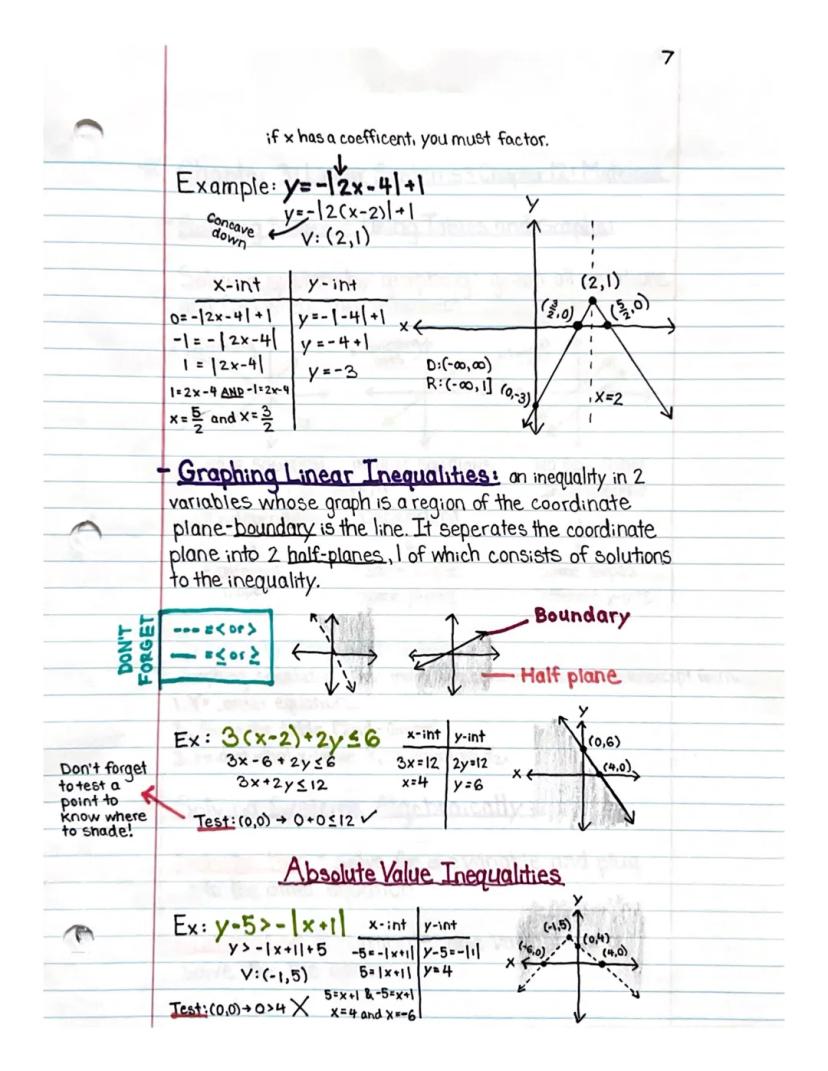 7
if x has a coefficent, you must factor.
Example: y=-|2x-4|+1
y=-|2(x-2)|+1
Concave down
V: (2,1)
x-int y-int
0=-|2x-4|+1 y=-|-4|+1
-1=-|2x-4| y=-4+1
1=|2x-4| y=-3
1=2x-4 AND -1=2x-4
x=5/2 and x=3/2
y
(2,1)
(3/2,0) (5/2,0)
x
D:(-∞,∞)
R:(-∞,1] (0,-3)
x=2
- Graphing Linear Inequalities: an inequality in 2
variables whose graph is a region of the coordinate
plane-boundary is the line. It seperates the coordinate
plane into 2 half-planes, 1 of which consists of solutions
to the inequality.
DON'T
FORGET
--- = < or >
— = ≤ or ≥
Boundary
Half plane
Ex: 3(x-2)+2y≤6
3x-6+2y≤6
3x+2y≤12
Test:(0,0)→0+0≤12 ✓
x-int y-int
3x=12 2y=12
x=4 y=6
y
(0,6)
x
(4,0)
Don't forget
to test a
point to
know where
to shade!
Absolute Value Inequalities
Ex: y-5>-|x+1|
y>-|x+1|+5
V:(-1,5)
Test:(0,0)→0>4 X
x-int y-int
-5=-|x+1| y-5=-|1|
5=|x+1| y=4
5=x+1 & -5=x+1
x=4 and x=-6
y
(-1,5)
(0,4)
(-6,0) (4,0)
x